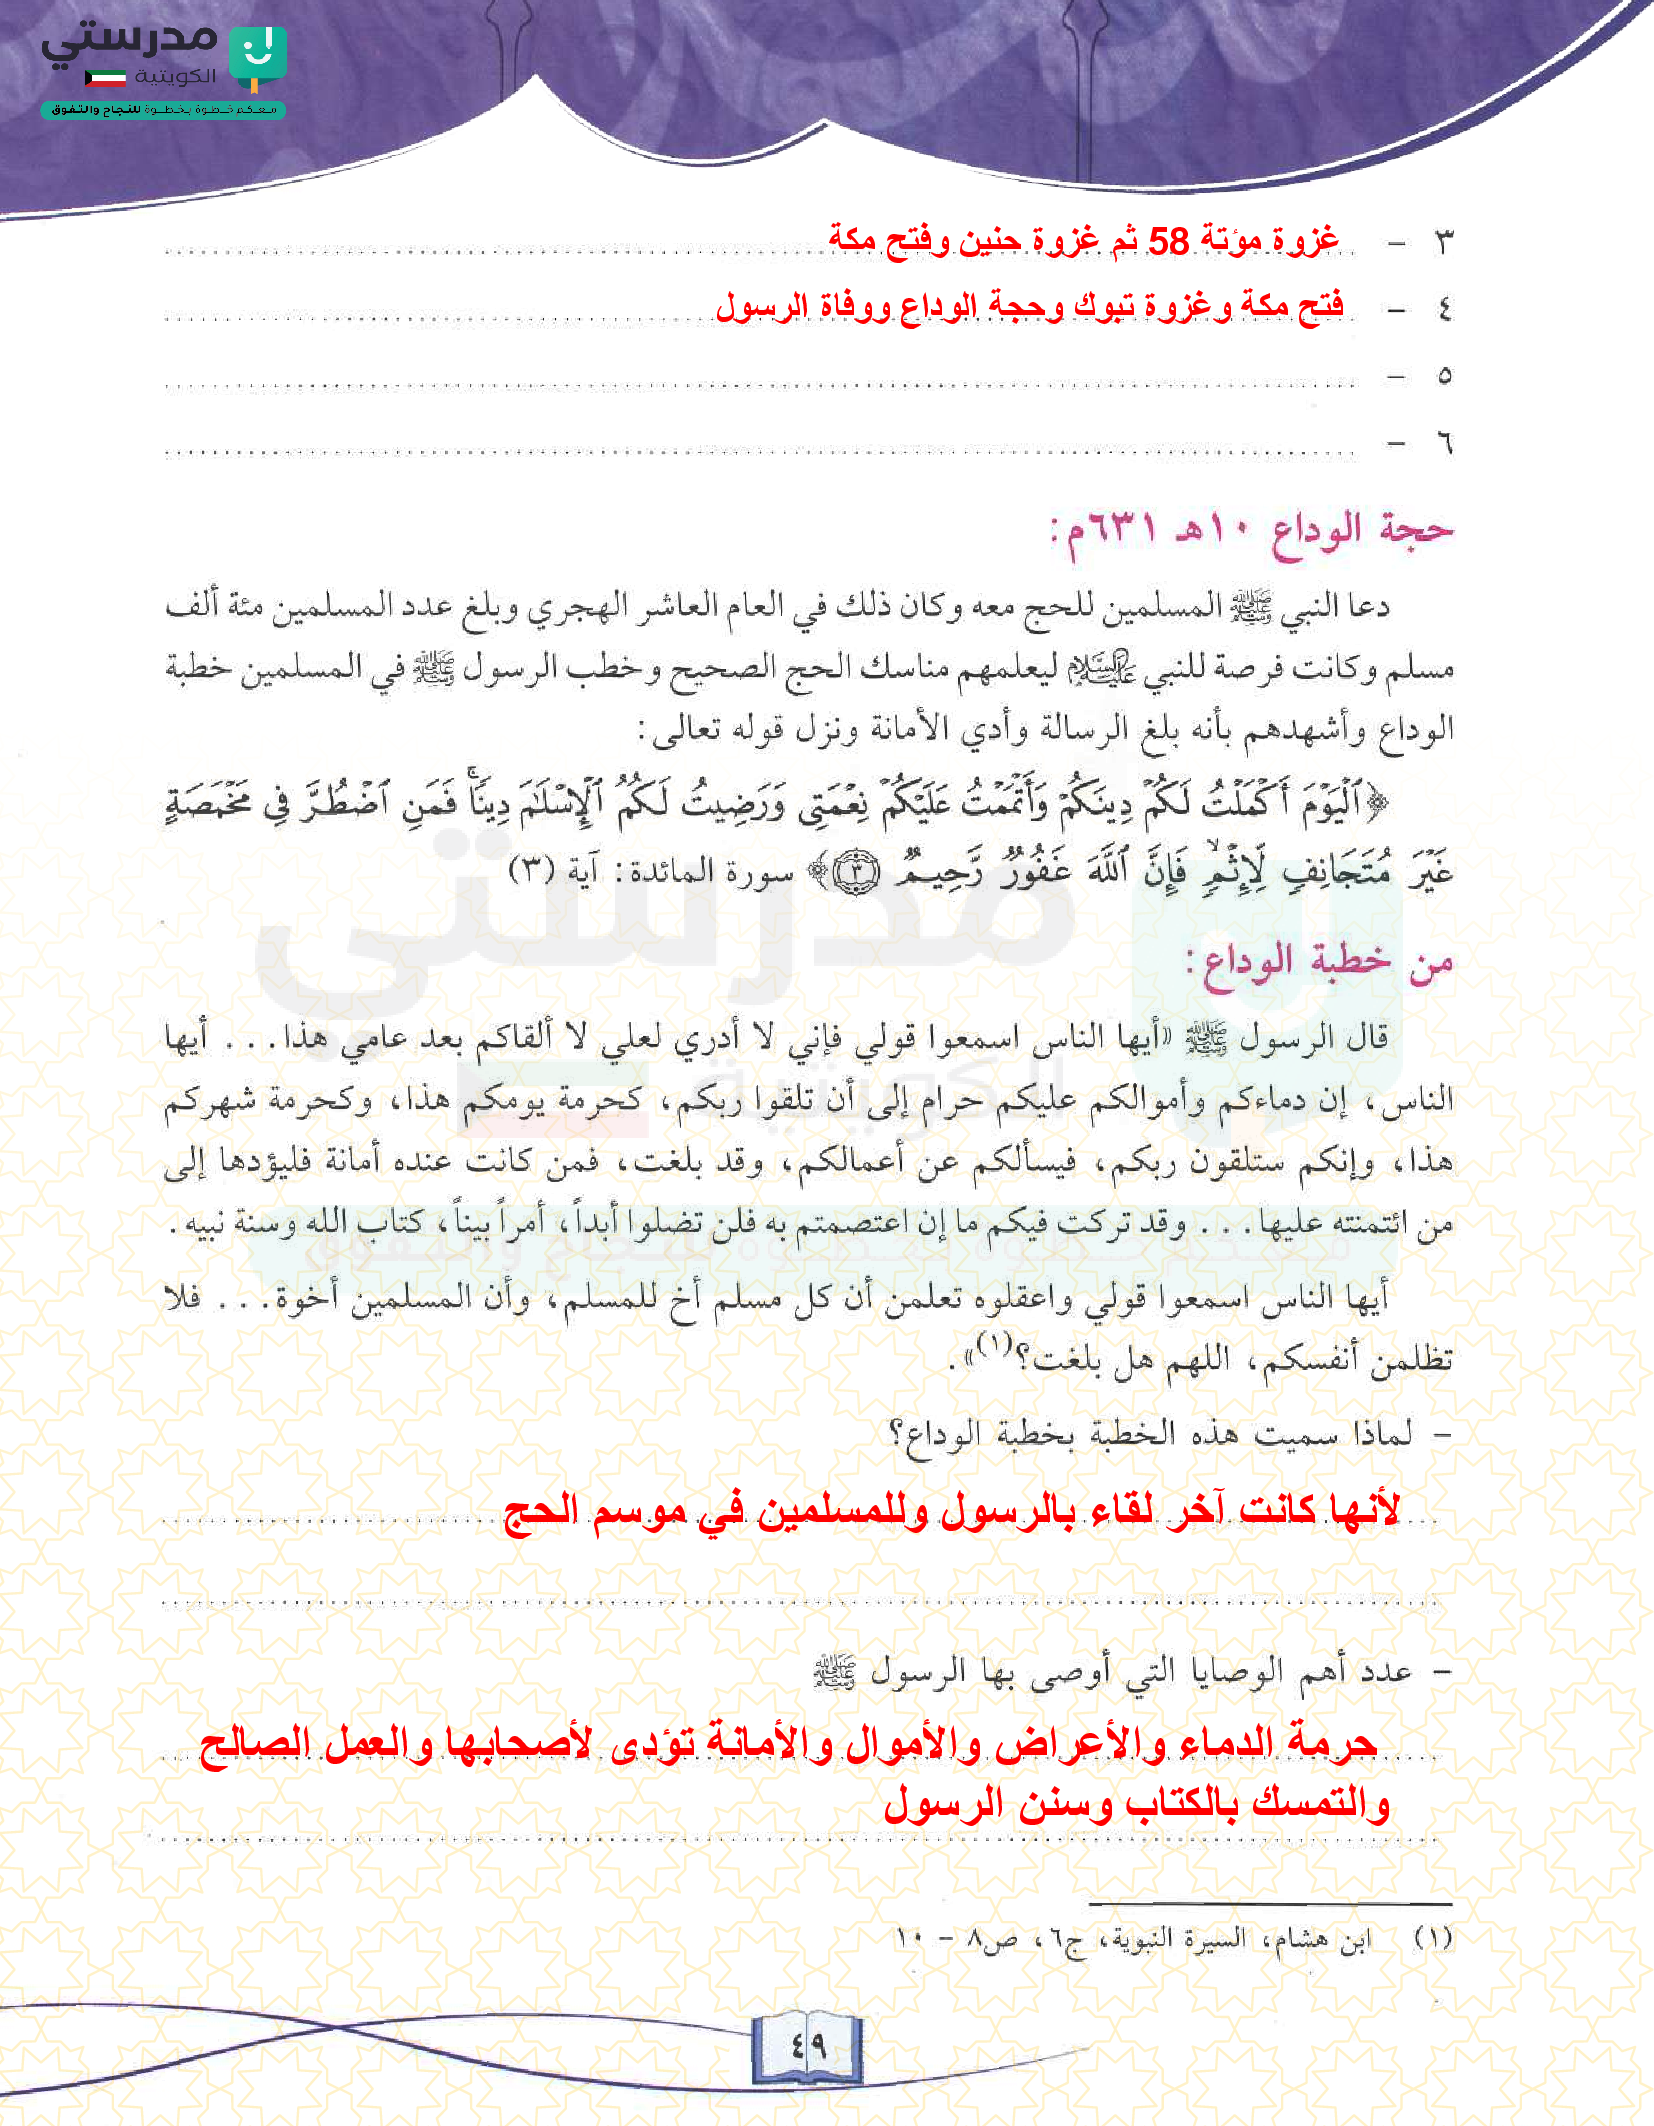 مدرستي
الكويتية
معكم خطوة بخطوة للنجاح والتفوق
٣ - غزوة مؤتة 58 ثم غزوة حنين وفتح مكة
٤ - فتح مكة وغزوة تبوك وحجة الوداع ووفاة الرسول
٥ -
٦ -
حجة الوداع ١٠هـ ٦٣١م:
دعا النبي ﷺ المسلمين للحج معه وكان ذلك في العام العاشر الهجري وبلغ عدد المسلمين مئة ألف
مسلم وكانت فرصة للنبي عليه السلام ليعلمهم مناسك الحج الصحيح وخطب الرسول ﷺ في المسلمين خطبة
الوداع وأشهدهم بأنه بلغ الرسالة وأدي الأمانة ونزل قوله تعالى:
﴿ٱلْيَوْمَ أَكْمَلْتُ لَكُمْ دِينَكُمْ وَأَتْمَمْتُ عَلَيْكُمْ نِعْمَتِى وَرَضِيتُ لَكُمُ ٱلْإِسْلَٰمَ دِينًاۚ فَمَنِ ٱضْطُرَّ فِى مَخْمَصَةٍ
غَيْرَ مُتَجَانِفٍ لِّإِثْمٍۙ فَإِنَّ ٱللَّهَ غَفُورٌ رَّحِيمٌ ٣﴾ سورة المائدة: آية (٣)
من خطبة الوداع:
قال الرسول ﷺ «أيها الناس اسمعوا قولي فإني لا أدري لعلي لا ألقاكم بعد عامي هذا... أيها
الناس، إن دماءكم وأموالكم عليكم حرام إلى أن تلقوا ربكم، كحرمة يومكم هذا، وكحرمة شهركم
هذا، وإنكم ستلقون ربكم، فيسألكم عن أعمالكم، وقد بلغت، فمن كانت عنده أمانة فليؤدها إلى
من ائتمنته عليها... وقد تركت فيكم ما إن اعتصمتم به فلن تضلوا أبداً، أمراً بيناً، كتاب الله وسنة نبيه.
أيها الناس اسمعوا قولي واعقلوه تعلمن أن كل مسلم أخ للمسلم، وأن المسلمين أخوة... فلا
تظلمن أنفسكم، اللهم هل بلغت؟(١)».
- لماذا سميت هذه الخطبة بخطبة الوداع؟
لأنها كانت آخر لقاء بالرسول وللمسلمين في موسم الحج
- عدد أهم الوصايا التي أوصى بها الرسول ﷺ
حرمة الدماء والأعراض والأموال والأمانة تؤدى لأصحابها والعمل الصالح
والتمسك بالكتاب وسنن الرسول
(١) ابن هشام، السيرة النبوية، ج٦، ص٨ - ١٠
٤٩